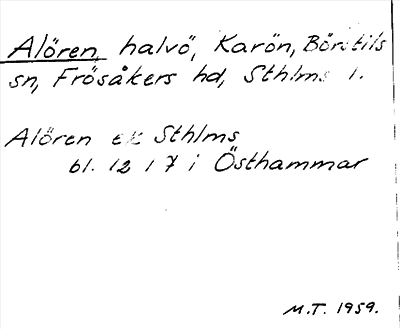 Alören, halvö, Karön, Börstils
sn, Frösåkers hd, Sthlms l.
Alören ek Sthlms
bl. 12 1 7 i Östhammar
M.T. 1959.